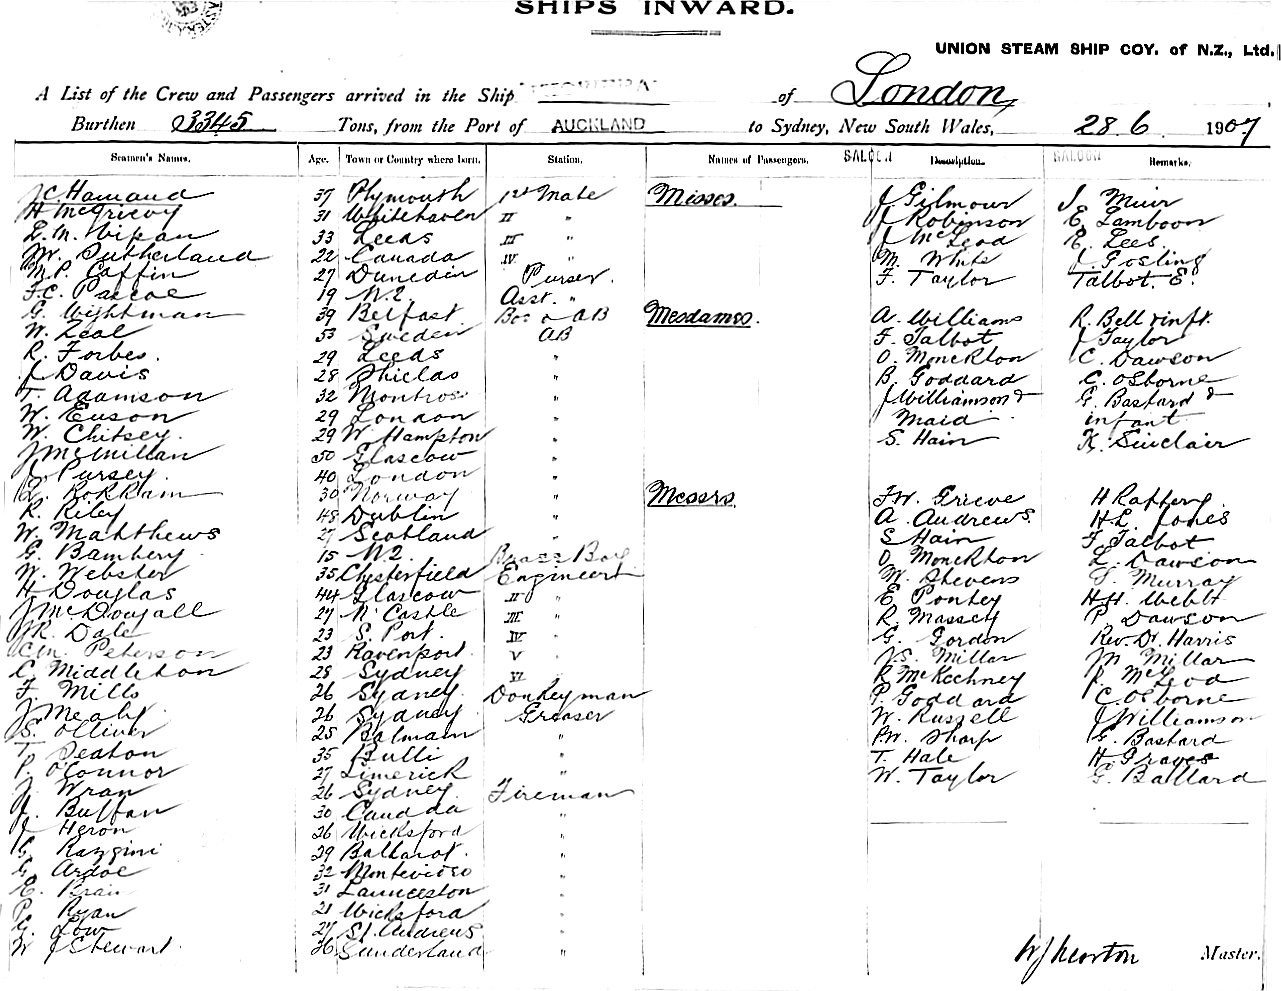 SHIPS INWARD.
UNION STEAM SHIP COY. of N.Z., Ltd.
A List of the Crew and Passengers arrived in the Ship of London
Burthen 3345 Tons, from the Port of AUCKLAND to Sydney, New South Wales, 28.6. 1907
Seamen's Names. Age. Town or Country where born. Station. Names of Passengers. SALOON Description. SALOON Remarks.
J C Hamaud 37 Plymouth 1st Mate Misses. J Gilmour J. Muir
H McGrievy 31 Whitehaven II " J Robinson E. Lamboon
L. M. Wipan 33 Leeds III " J McLeod E. Lees
W. Sutherland 22 Canada IV " M. White J Gosling
M. P. Caffin 27 Dunedin Purser. F. Taylor Talbot. E.
F. C. Pascoe 19 N.Z. Asst. "
G. Wightman 39 Belfast Bos & AB Mesdames. A. Williams R. Bell & inft.
N. Zeal 53 Sweden AB F. Talbot J Taylor
R. Forbes. 29 Leeds " O. Monckton C. Dawson
J Davis 28 Shields " B. Goddard C. Osborne
T. Adamson 32 Montrose " J Williamson & G. Bastard &
W. Euson 29 London " Maid infant
W. Chitsey. 29 W. Hampton " S. Hain K. Sinclair
J McMillan 50 Glascow "
J Pursey. 40 London "
L. Rokkam 30 Norway " Messrs. F.W. Grieve H Raffery.
R. Riley 48 Dublin " A. Andrews. H.L. Jones
W. Matthews 27 Scotland " S Hain F Talbot
G. Bambery 15 N.Z. Brass Boy O Monckton L. Dawson
W. Webster 35 Chesterfield Engineer W. Stevens G. Murray
H Douglas 44 Glascow II " E Pontey H.H. Webb
J McDougall 27 N'Castle III " R. Massey P Dawson
R. Dale 23 S. Port. IV " G. Gordon Rev. Dr Harris
C.M. Peterson 23 Ravenport V " J.S. Millar J M. Millar
C. Middleton 28 Sydney VI " R McKechney R. McLeod
F. Mills 26 Sydney. Donkeyman P. Goddard C. Osborne
J Mealy. 26 Sydney Greaser W. Russell J Williamson
S. Olliver 25 Balmain " P.W. Sharp G. Bastard
T. Seaton 35 Bulli " T. Hale H Graves
P. O'Connor 27 Limerick " W. Taylor G. Ballard
J. Wran 26 Sydney Fireman
J. Buffan 30 Canada "
J Heron 26 Wicksford "
G. Razzini 29 Ballarat. "
G. Ardoe 32 Montevideo "
E. Brain 31 Launceston "
P. Ryan 21 Wicksford "
G. Low 27 St. Andrews "
W J Stewart. 36 Sunderland "
W J Newton Master.